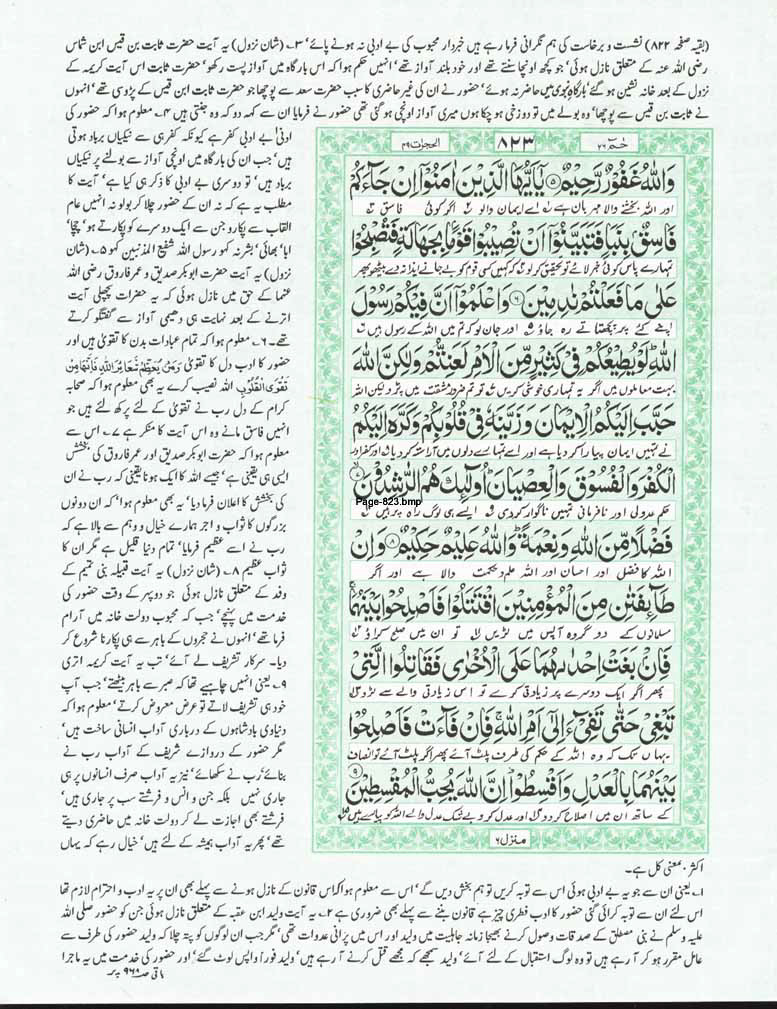 (بقیہ صفحہ ۸۲۲) نشست و برخاست کی ہم نگرانی فرما رہے ہیں خبردار محبوب کی بے ادبی نہ ہونے پائے‘ ۳۔ (شان نزول) یہ آیت حضرت ثابت بن قیس ابن شماس
رضی اللہ عنہ کے متعلق نازل ہوئی‘ جو کچھ اونچا سنتے تھے اور خود بلند آواز تھے‘ انہیں حکم ہوا کہ اس بارگاہ میں آواز پست رکھو‘ حضرت ثابت اس آیت کریمہ کے
نزول کے بعد خانہ نشین ہو گئے‘ بارگاہ نبوی میں حاضر نہ ہوئے‘ حضور نے ان کی غیر حاضری کا سبب حضرت سعد سے پوچھا جو حضرت ثابت ابن قیس کے پڑوسی تھے‘ انہوں
نے ثابت بن قیس سے پوچھا‘ وہ بولے میں تو دوزخی ہو چکا ہوں میری آواز اونچی ہو گئی تھی حضور نے فرمایا ان سے کہہ دو کہ وہ جنتی ہیں ۴۔ معلوم ہوا کہ حضور کی
ادنیٰ بے ادبی کفر ہے کیونکہ کفر ہی سے نیکیاں برباد ہوتی
ہیں‘ جب ان کی بارگاہ میں اونچی آواز سے بولنے پر نیکیاں
برباد ہیں‘ تو دوسری بے ادبی کا ذکر ہی کیا ہے‘ آیت کا
مطلب یہ ہے کہ نہ ان کے حضور چلا کر بولو نہ انہیں عام
القاب سے پکارو جن سے ایک دوسرے کو پکارتے ہو‘ چچا‘
ابا‘ بھائی‘ بشر نہ کہو رسول اللہ شفیع المذنبین کہو ۵۔ (شان
نزول) یہ آیت حضرت ابوبکر صدیق و عمر فاروق رضی اللہ
عنہما کے حق میں نازل ہوئی کہ یہ حضرات پچھلی آیت
اترنے کے بعد نہایت ہی دھیمی آواز سے گفتگو کرتے
تھے۔ ۶۔ معلوم ہوا کہ تمام عبادات بدن کا تقویٰ ہیں اور
حضور کا ادب دل کا تقویٰ وَمَنْ يُعَظِّمْ شَعَائِرَ اللہِ فَاِنَّهَا مِنْ
تَقْوَى الْقُلُوْبِ اللہ نصیب کرے یہ بھی معلوم ہوا کہ صحابہ
کرام کے دل رب نے تقویٰ کے لئے پرکھ لئے ہیں جو
انہیں فاسق مانے وہ اس آیت کا منکر ہے ۷۔ اس سے
معلوم ہوا کہ حضرت ابوبکر صدیق اور عمر فاروق کی بخشش
ایسی ہی یقینی ہے‘ جیسے اللہ کا ایک ہونا یقینی کہ رب نے ان
کی بخشش کا اعلان فرما دیا‘ یہ بھی معلوم ہوا‘ کہ ان دونوں
بزرگوں کا ثواب و اجر ہمارے خیال و وہم سے بالا ہے کہ
رب نے اسے عظیم فرمایا‘ تمام دنیا قلیل ہے مگر ان کا
ثواب عظیم ۸۔ (شان نزول) یہ آیت قبیلہ بنی تمیم کے
وفد کے متعلق نازل ہوئی جو دوپہر کے وقت حضور کی
خدمت میں پہنچے‘ جب کہ محبوب دولت خانہ میں آرام
فرما تھے‘ انہوں نے حجروں کے باہر سے ہی پکارنا شروع کر
دیا۔ سرکار تشریف لے آئے‘ تب یہ آیت کریمہ اتری
۹۔ یعنی انہیں چاہیے تھا کہ صبر سے باہر بیٹھتے‘ جب آپ
خود ہی تشریف لاتے تو عرض معروض کرتے‘ معلوم ہوا کہ
دنیاوی بادشاہوں کے درباری آداب انسانی ساخت ہیں‘
مگر حضور کے دروازے شریف کے آداب رب نے
بنائے‘ رب نے سکھائے‘ نیز یہ آداب صرف انسانوں پر ہی
جاری نہیں بلکہ جن و انس و فرشتے سب پر جاری ہیں‘
فرشتے بھی اجازت لے کر دولت خانہ میں حاضری دیتے
تھے‘ پھر یہ آداب ہمیشہ کے لئے ہیں‘ خیال رہے کہ یہاں
اکثر‘ بمعنی کل ہے۔
حٰمٓ ۲۶ ۸۲۳ الحجرات ۴۹
وَاللّٰهُ غَفُوْرٌ رَّحِيْمٌ ۵ يٰۤاَيُّهَا الَّذِيْنَ اٰمَنُوْۤا اِنْ جَآءَكُمْ
اور اللہ بخشنے والا مہربان ہے اے ایمان والو اگر کوئی فاسق
فَاسِقٌۢ بِنَبَاٍ فَتَبَيَّنُوْۤا اَنْ تُصِيْبُوْا قَوْمًۢا بِجَهَالَةٍ فَتُصْبِحُوْا
تمہارے پاس کوئی خبر لائے تو تحقیق کر لو کہ کہیں کسی قوم کو بے جانے ایذا نہ دے بیٹھو پھر
عَلٰى مَا فَعَلْتُمْ نٰدِمِيْنَ ۶ وَاعْلَمُوْۤا اَنَّ فِيْكُمْ رَسُوْلَ
اپنے کئے پر پچھتاتے رہ جاؤ اور جان لو کہ تم میں اللہ کے رسول ہیں
اللّٰهِ ؕ لَوْ يُطِيْعُكُمْ فِيْ كَثِيْرٍ مِّنَ الْاَمْرِ لَعَنِتُّمْ وَلٰكِنَّ اللّٰهَ
بہت معاملوں میں اگر یہ تمہاری خوشی کریں تو تم ضرور مشقت میں پڑو لیکن اللہ
حَبَّبَ اِلَيْكُمُ الْاِيْمَانَ وَزَيَّنَهٗ فِيْ قُلُوْبِكُمْ وَكَرَّهَ اِلَيْكُمُ
نے تمہیں ایمان پیارا کر دیا ہے اور اسے تمہارے دلوں میں آراستہ کر دیا اور کفر اور
الْكُفْرَ وَالْفُسُوْقَ وَالْعِصْيَانَ ؕ اُولٰٓئِكَ هُمُ الرّٰشِدُوْنَ ۷
Page-823.bmp
حکم عدولی اور نافرمانی تمہیں ناگوار کر دی ایسے ہی لوگ راہ پر ہیں
فَضْلًا مِّنَ اللّٰهِ وَنِعْمَةً ؕ وَاللّٰهُ عَلِيْمٌ حَكِيْمٌ ۸ وَاِنْ
اللہ کا فضل اور احسان اور اللہ علم و حکمت والا ہے اور اگر
طَآئِفَتٰنِ مِنَ الْمُؤْمِنِيْنَ اقْتَتَلُوْا فَاَصْلِحُوْا بَيْنَهُمَا
مسلمانوں کے دو گروہ آپس میں لڑیں تو ان میں صلح کراؤ
فَاِنْۢ بَغَتْ اِحْدٰىهُمَا عَلَى الْاُخْرٰى فَقَاتِلُوا الَّتِيْ
پھر اگر ایک دوسرے پر زیادتی کرے تو اس زیادتی والے سے لڑو
تَبْغِيْ حَتّٰى تَفِيْٓءَ اِلٰۤى اَمْرِ اللّٰهِ ۚ فَاِنْ فَآءَتْ فَاَصْلِحُوْا
یہاں تک کہ وہ اللہ کے حکم کی طرف پلٹ آئے پھر اگر پلٹ آئے تو انصاف
بَيْنَهُمَا بِالْعَدْلِ وَاَقْسِطُوْا ؕ اِنَّ اللّٰهَ يُحِبُّ الْمُقْسِطِيْنَ ۹
کے ساتھ ان میں اصلاح کر دو اور عدل کرو بے شک عدل والے اللہ کو پیارے ہیں
منزل ۶
۱۔ یعنی ان سے جو یہ بے ادبی ہوئی اس سے توبہ کریں تو ہم بخش دیں گے‘ اس سے معلوم ہوا کہ اس قانون کے نازل ہونے سے پہلے بھی ان پر یہ ادب و احترام لازم تھا
اس لئے ان سے توبہ کرائی گئی حضور کا ادب فطری چیز ہے قانون بننے سے پہلے بھی ضروری ہے ۲۔ یہ آیت ولید ابن عقبہ کے متعلق نازل ہوئی جن کو حضور صلی اللہ
علیہ وسلم نے بنی مصطلق کے صدقات وصول کرنے بھیجا زمانہ جاہلیت میں ولید اور اس میں پرانی عداوت تھی‘ مگر جب ان لوگوں کو پتہ چلا کہ ولید حضور کی طرف سے
عامل مقرر ہو کر آ رہے ہیں تو وہ لوگ استقبال کے لئے آئے‘ ولید سمجھے کہ مجھے قتل کرنے آ رہے ہیں‘ ولید فوراً واپس لوٹ گئے‘ اور حضور کی خدمت میں یہ ماجرا
باقی صفحہ ۹۶۸ پر